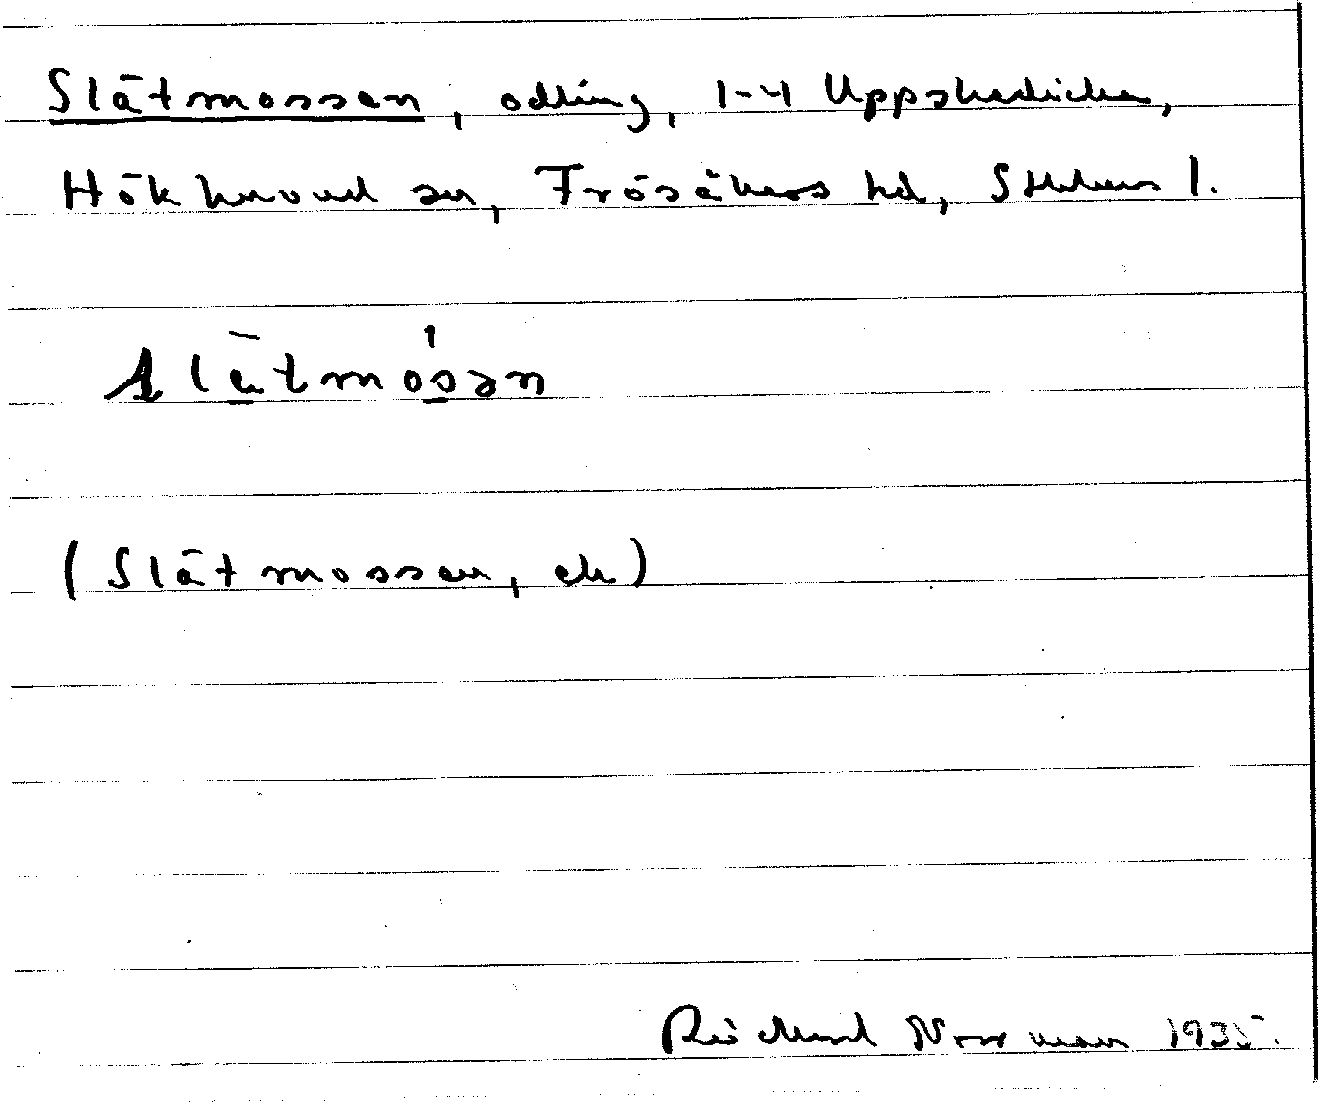 Slåtmossen, odling, 1-4 Uppskedicka,
Hökhuvud sn, Frösåkers hd, Sthlms l.
slātmósən
(Slåtmossen, ek)
Richard Norrman 1935.